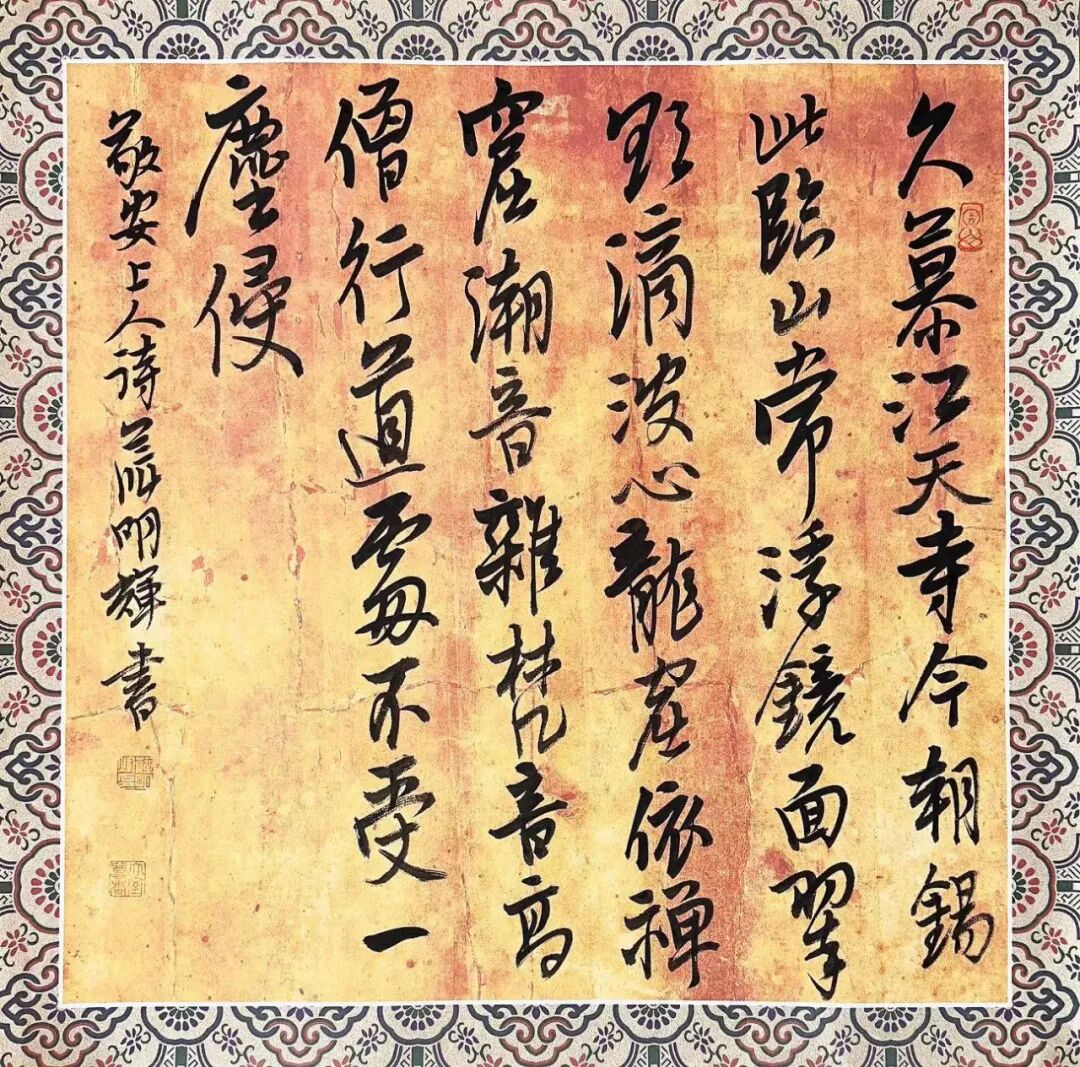 久慕江天寺今朝錫
此臨山常浮鏡面翠
欲滴波心龍窟依禪
窟潮音雜梵音高
僧行道處不受一
塵侵
敬安上人诗蕭明輝書